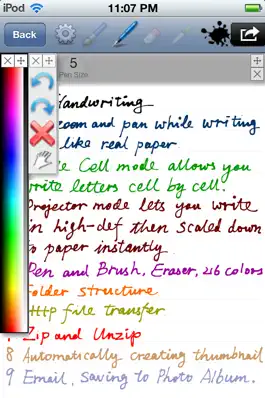 iPod 11:07 PM
Back
5
Pen Size
Handwriting
zoom and pan while writing
like real paper
Cell mode allows you
write letters cell by cell.
Projector mode lets you write
in high-def then scaled down
to paper instantly
Pen and Brush, Eraser, 216 colors
Folder structure
HTTP file transfer
7 Zip and Unzip
8 Automatically creating thumbnail
9 Email, Saving to Photo Album.